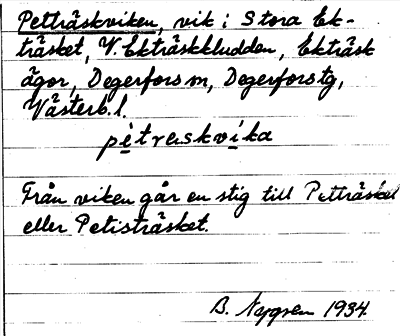 Petträskviken, vik i Stora Ek-
träsket, V. Ekträskkludden, Ekträsk
ägor, Degerfors sn, Degerfors tg,
Västerb. l.
pètrɐskvìka
Från viken går en stig till Petträsket
eller Petisträsket.
B. Nygren 1934